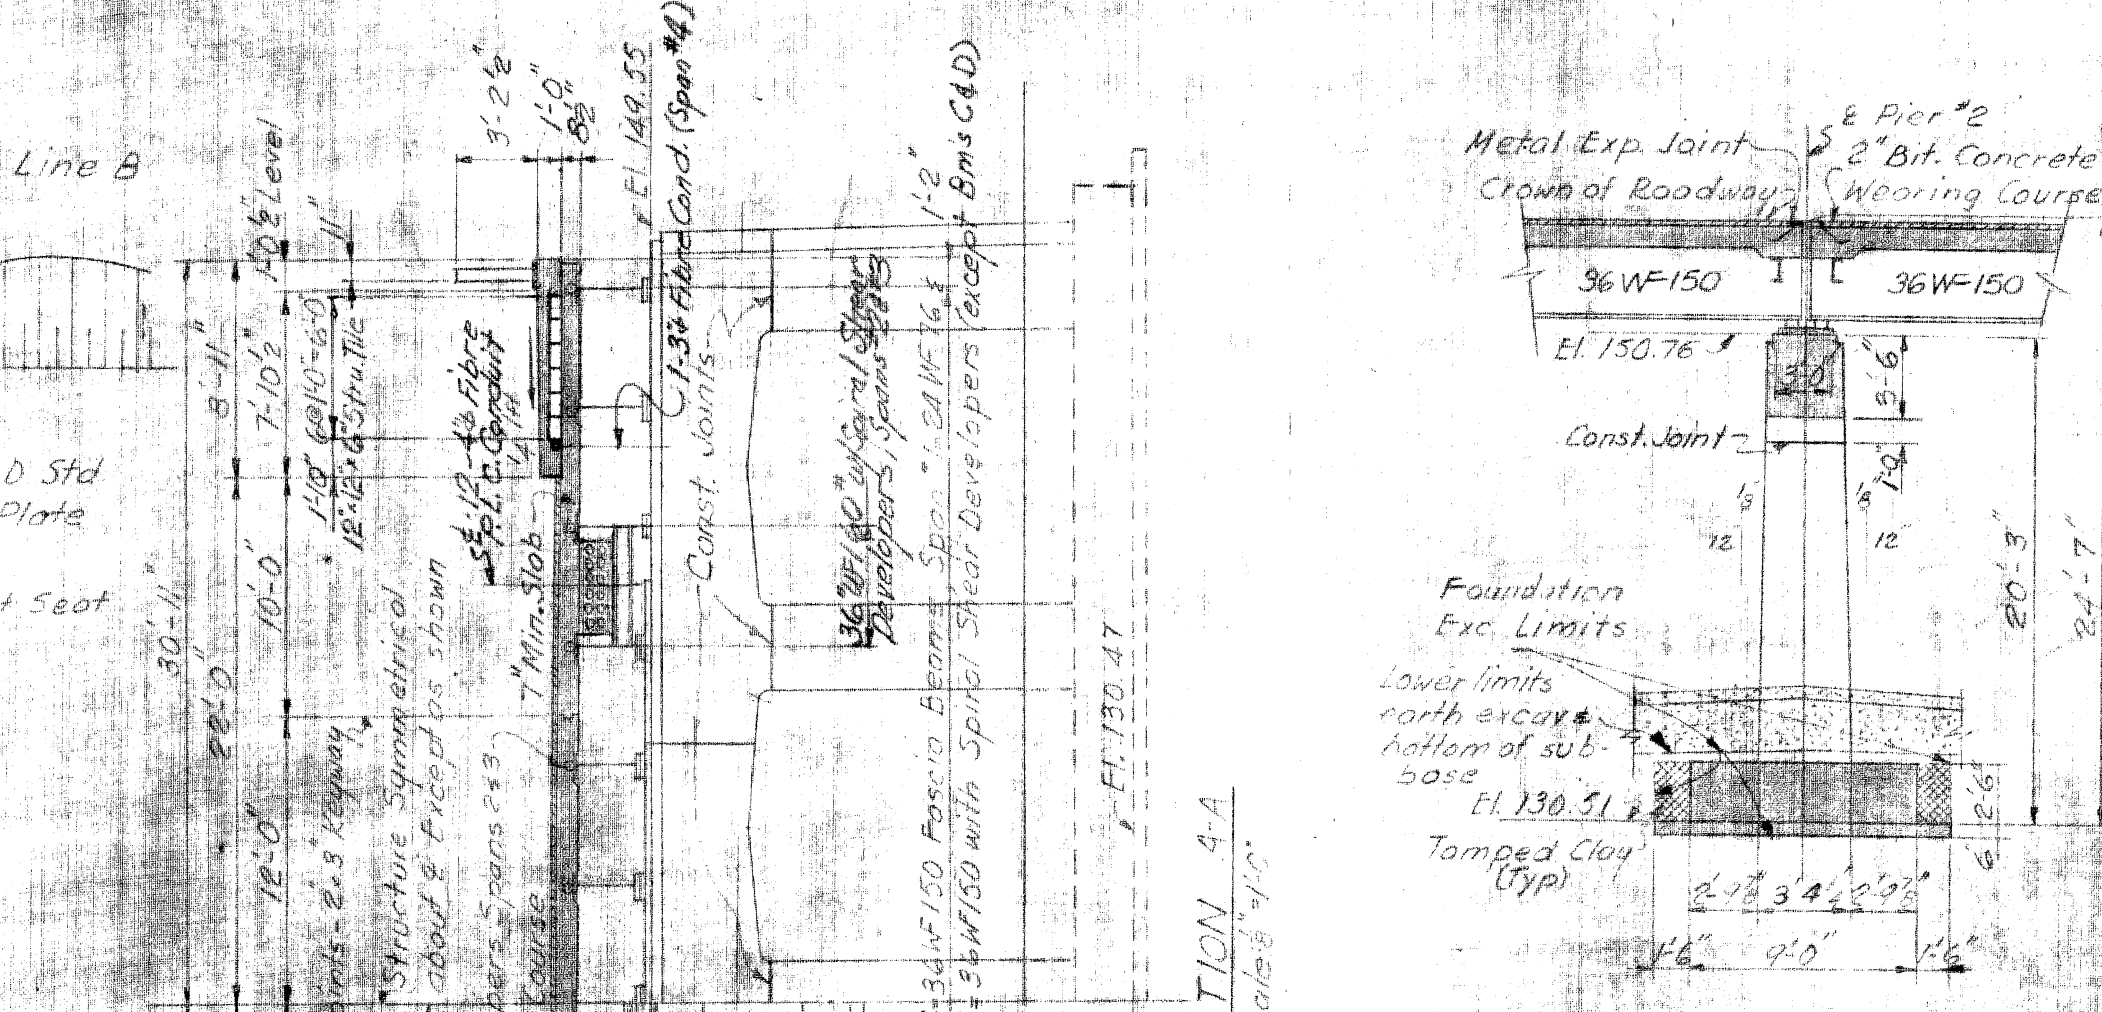 Line B
D Std
Plate
t Seat
30'-11"
8'-11"
22'-0"
1'-0½" Level
7'-10½"
10'-0"
12'-0"
11"
6@1'-0"=6'-0"
1'-10"
12"x12"x6" Stru. Tile
2"x3" Keyway
Structure Symmetrical
about ¢ Except as shown
3'-2½"
1'-0"
8½"
12-4"ø Fibre
P.L.C. Conduit
7" Min. Slab
Spans 2&3
Course
El. 149.55
1-3"ø Fibre Cond. (Span #4)
Const. Joints
Developers, Spans
36WF150 Fascia Beams, Span
=36WF150 with Spiral Shear Developers (except Bms C&D)
1'-2"
El. 130.47
TION A-A
¢ Pier #2
Metal Exp. Joint
2" Bit. Concrete
Crown of Roadway
Wearing Course
36WF150
36WF150
El. 150.76
3'-0"
3'-6"
Const. Joint
1'-0"
1/8
12
1/8
12
20'-3"
24'-7"
Foundation
Exc. Limits
Lower limits
earth excav.
bottom of sub-
base
El. 130.51
Tamped Clay
(Typ)
6"
2'-6"
2'-9⅞"
3'4½"
2'-9⅞"
1'-6"
9'-0"
1'-6"